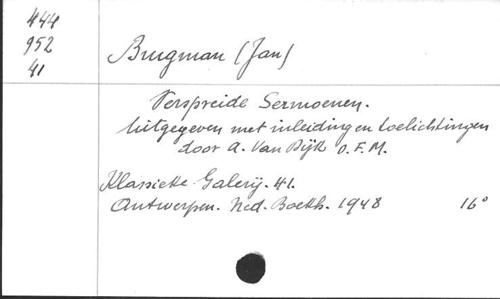 444
952
41
Brugman (Jan)
Verspreide Sermoenen.
Uitgegeven met inleiding en toelichtingen
door A. Van Dijk O.F.M.
Klassieke Galerij. 41.
Antwerpen. Ned. Boekh. 1948 16°